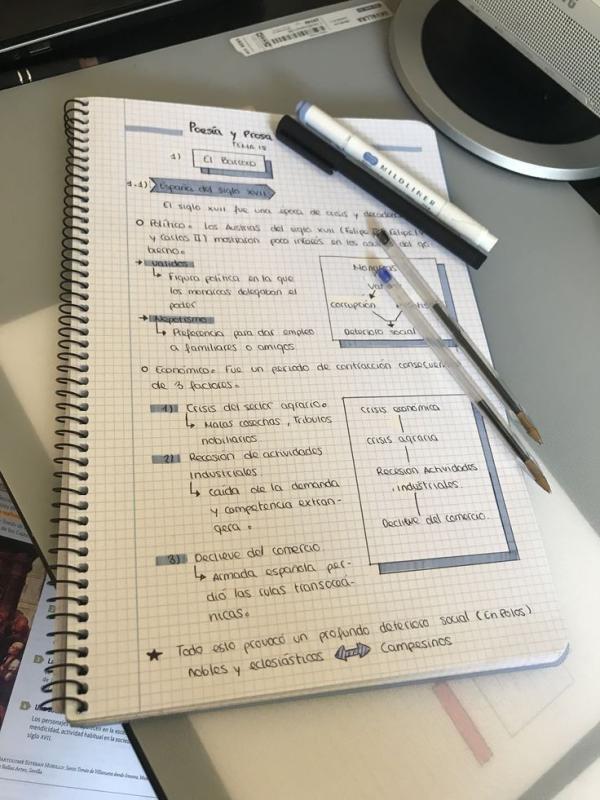 Poesía y Prosa
TEMA 18
1) El Barroco
1.1) España del siglo XVII
El siglo XVII fue una época de crisis y
O Político. Los Austrias del siglo XVII (Felipe III, Felipe IV
y Carlos II) mostraron poco interés en los del go
bierno.
→ Validos
↳ Figura política en la que
los monarcas delegaban el
poder
→ Nepotismo
↳ Preferencia para dar empleo
a familiares o amigos.
Monarcas
corrupción
Deterioro social
O Económico. Fue un periodo de contracción
de 3 factores.
1) Crisis del sector agrario.
↳ Malas cosechas, Tributos
nobiliarios
2) Recesión de actividades
industriales.
↳ caída de la demanda
y competencia extran-
gera.
3) Declieve del comercio
↳ Armada española per-
dió las rutas transoceá-
nicas.
crisis económica
crisis agraria
Recesión Actividades
industriales.
Declieve del comercio.
★ Todo esto provocó un profundo deterioro social (En Polos)
nobles y eclesiásticos ⟺ Campesinos
MILDLINER
Los personajes
mendicidad, actividad habitual en la
siglo XVII.